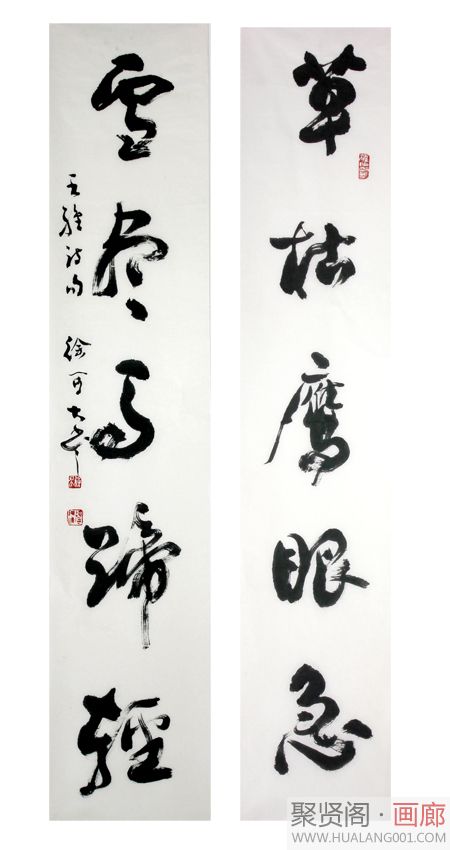 草枯鷹眼急
雪尽馬蹄輕
王維詩句 徐可
聚贤阁·画廊
WWW.HUALANG001.COM